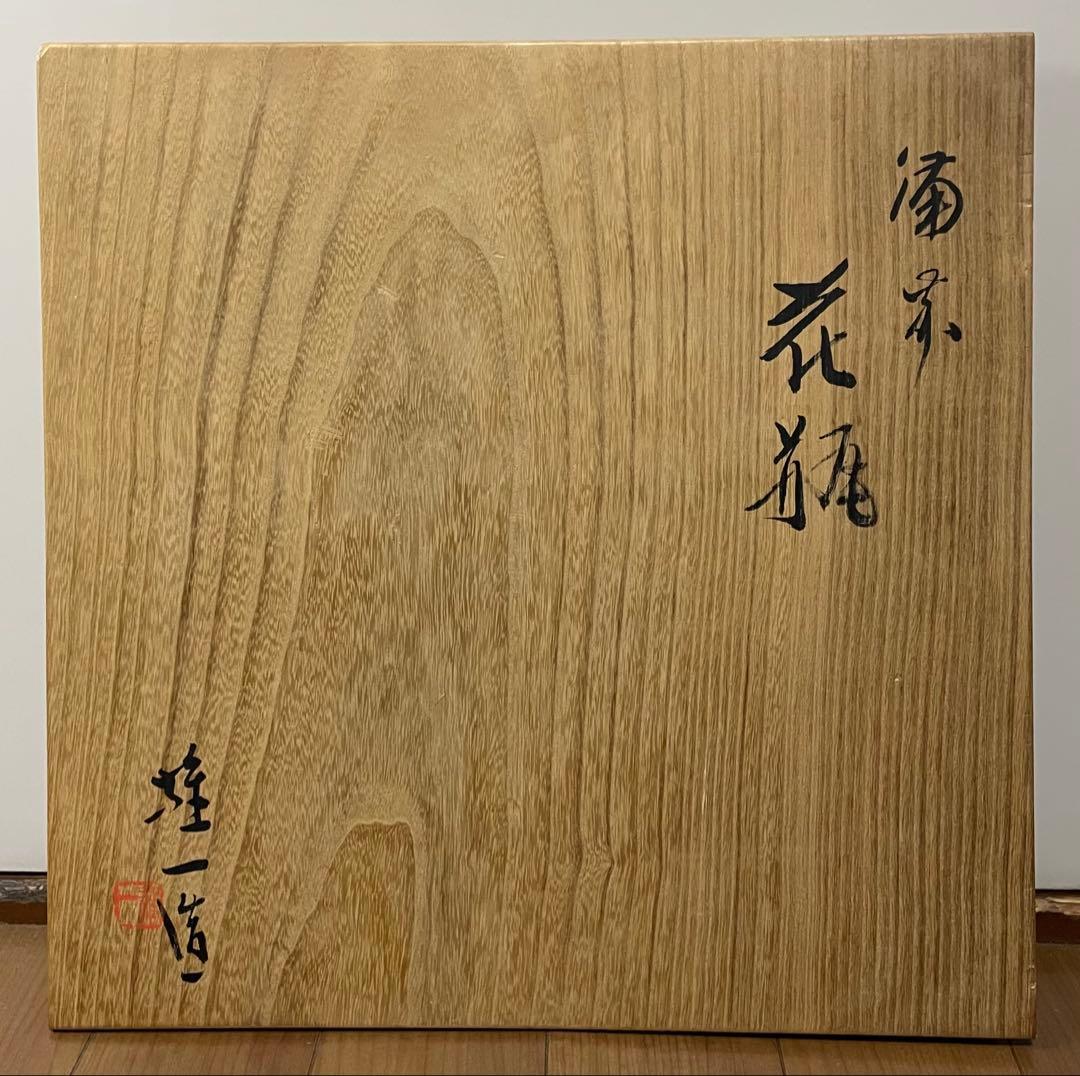 備前
花瓶
雄一造